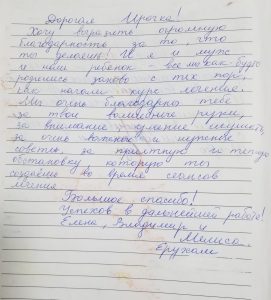 Дорогая Ирочка!
Хочу выразить огромную
благодарность за то, что
ты делаешь! И я и муж
и наш ребенок - все мы как-будто
родились заново с тех пор,
как начали курс лечения.
Мы очень благодарны тебе
за твои волшебные руки,
за внимание, умение слушать,
за очень важные и нужные
советы, за приятную и теплую
обстановку, которую ты
создаешь во время сеансов
лечения.
Большое спасибо!
Успехов в дальнейшей работе!
Елена, Владимир и
Мелиса.
Ерухам